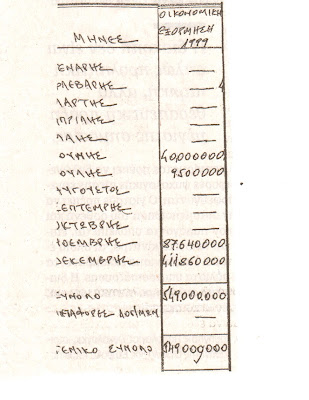 ΟΙΚΟΝΟΜΙΚΗ
ΜΗΝΕΣ ΕΞΟΡΜΗΣΗ
1999
ΕΝΑΡΗΣ —
ΛΕΒΑΡΗΣ —
ΙΑΡΤΗΣ —
ΙΠΡΙΛΗΣ —
ΛΑΗΣ —
ΟΥΝΗΣ 40,000000
ΟΥΛΗΣ 9500000
ΑΥΓΟΥΣΤΟΣ
ΣΕΠΤΕΜΡΗΣ —
ΟΚΤΩΒΡΗΣ —
ΝΟΕΜΒΡΗΣ 87.640000
ΔΕΚΕΜΒΡΗΣ 411.860000
ΣΥΝΟΛΟ 549,000,000
ΜΕΤΑΦΟΡΕΣ —
ΓΕΝΙΚΟ ΣΥΝΟΛΟ 549000000